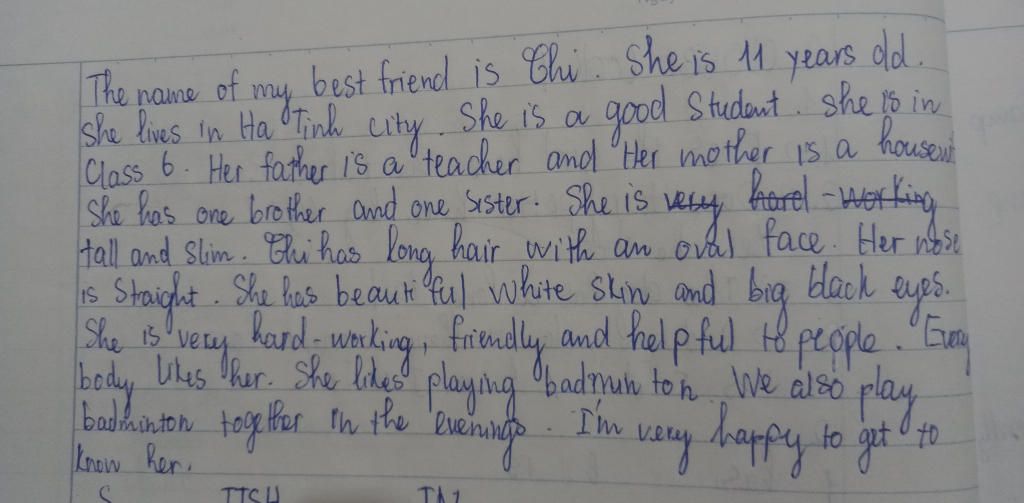 The name of my best friend is Thi. She is 11 years old.
She lives in Ha Tinh city. She is a good Student. she is in
Class 6. Her father is a teacher and Her mother is a housewi
She has one brother and one sister. She is very hard-working
tall and slim. Thi has long hair with an oval face. Her nose
is straight. She has beautiful white skin and big black eyes.
She is very hard-working, friendly and helpful to people. Every
body likes her. She likes playing badminton. We also play
badminton together in the evenings. I'm very happy to get to
know her.